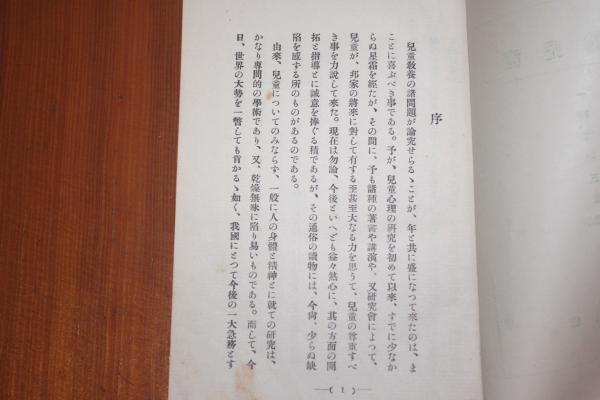 序
兒童敎養の諸問題が論究せらるゝことが、年と共に盛になつて來たのは、ま
ことに喜ぶべき事である。予が、兒童心理の硏究を初めて以來、すでに少なか
らぬ星霜を經たが、その間に、予も諸種の著書や講演や、又硏究會によつて、
兒童が、邦家の將來に對して有する至甚至大なる力を思うて、兒童の尊重すべ
き事を力說して來た。現在は勿論、今後といへども益々熱心に、其の方面の開
拓と指導とに誠意を捧ぐる積であるが、その通俗の讀物には、今尙、少らぬ缺
陷を感ずる所のものがあるのである。
由來、兒童についてのみならず、一般に人の身體と精神とに就ての硏究は、
かなり專門的の學術であり、又、乾燥無味に陷り易いものである。而して、今
日、世界の大勢を一瞥しても首かるゝ如く、我國にとつて今後の一大急務とす
—( 1 )—